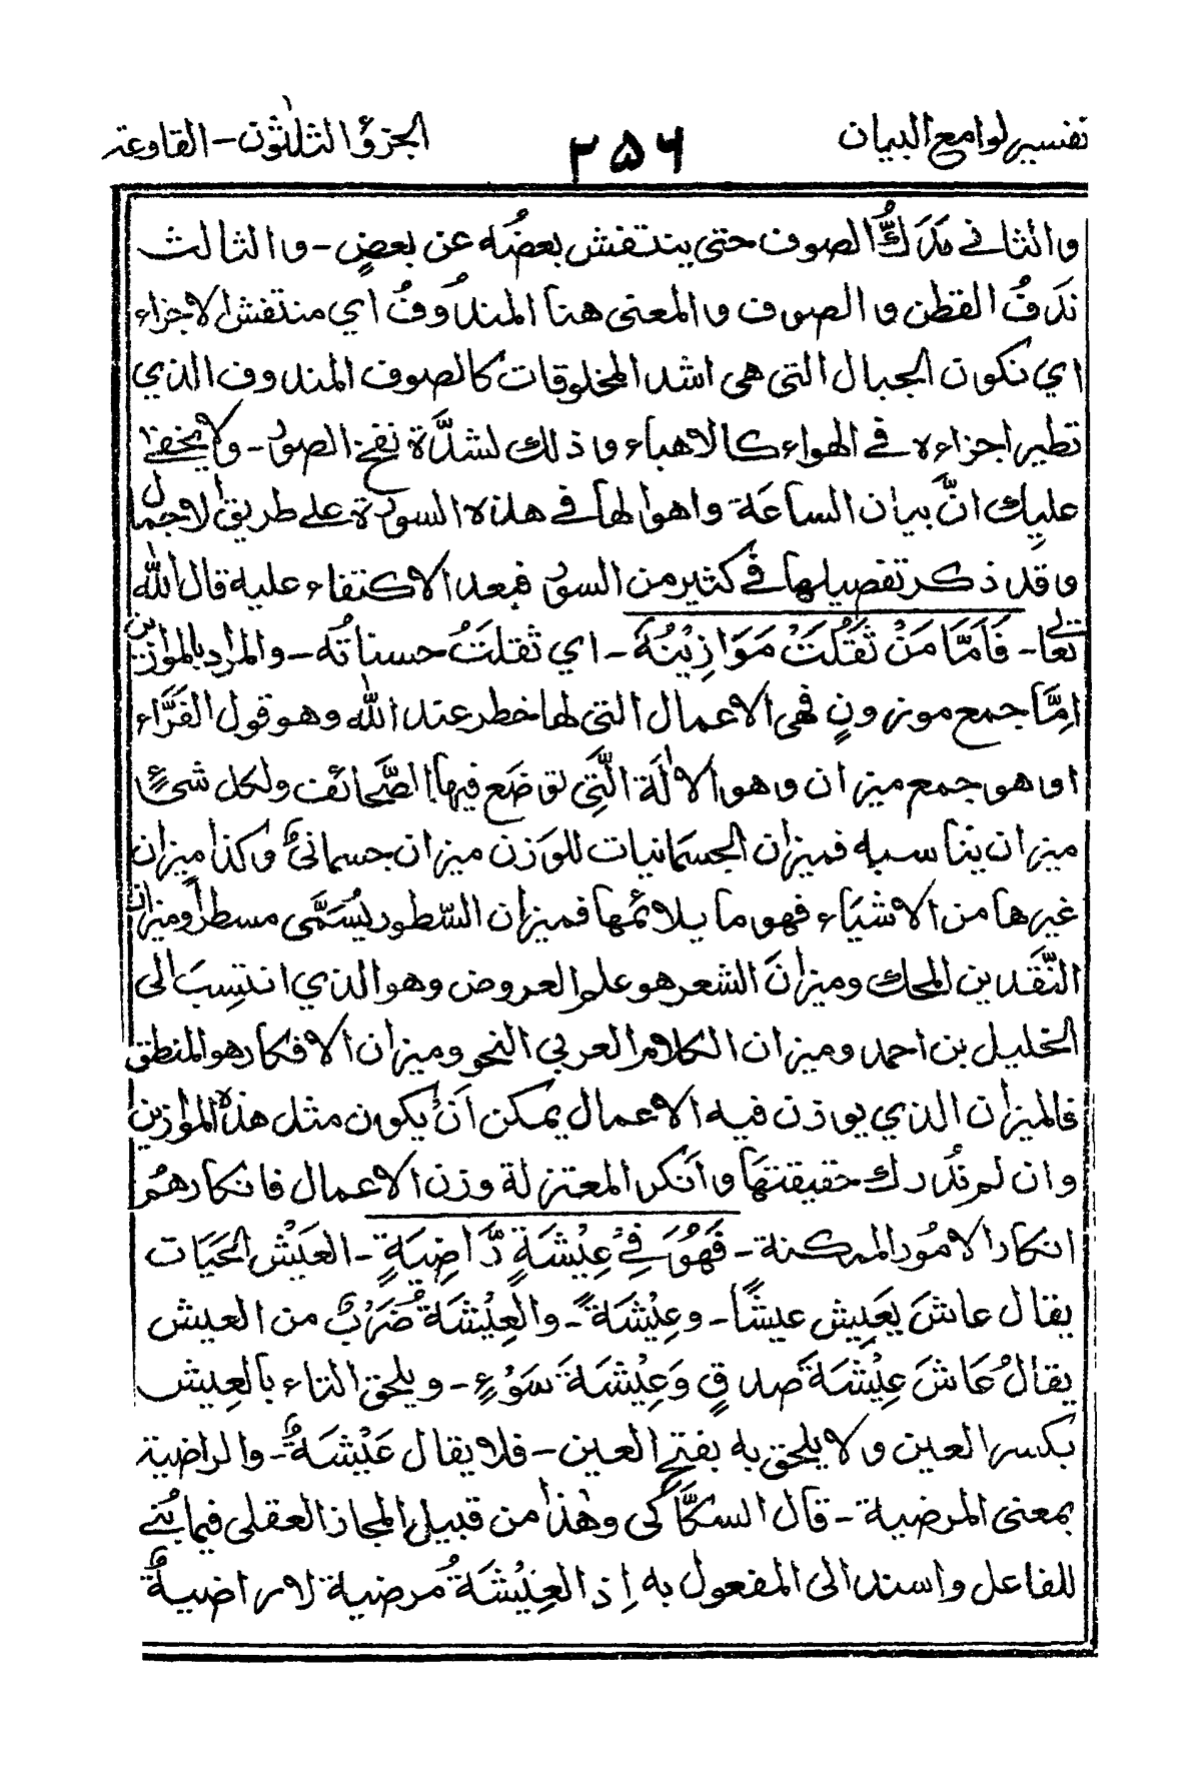 تفسير لوامع البيان ٢٥٦ الجزؤ الثلٰثون - القارعة
والثاني مَدَكُّ الصوف حتى ينتفش بعضُه عن بعضٍ - والثالث
نَدَفُ القطن والصوف والمعنى هنا المندُوفُ اي منتفش الاجزاء
اي تكون الجبال التى هى اشد المخلوقات كالصوف المندوف الذي
تطير اجزاءه في الهواء كالاهباء وذلك لشدَّة نفخ الصور - ولا يخفى
عليك انَّ بيان الساعَة واهوالها في هذه السورة على طريق الاجمال
وقد ذكر تفصيلها في كثير من السور فبعد الاكتفاء عليه قال الله
تعالى - فَاَمَّا مَنْ ثَقُلَتْ مَوَازِيْنُهٗ - اي ثقلَتْ حسناتُه - والمراد بالموازين
اِمَّا جمع موزونٍ فهى الاعمال التى لها خطر عند الله وهو قول الفَرَّاء
او هو جمع ميزان وهو الاٰلَة الَّتِي توضَع فيها الصَّحائف ولكل شئٍ
ميزان يناسبه فميزان الجسمانيات للوَزن ميزان جسمانيٌ وكذا ميزان
غيرها من الاشيَاء فهو ما يلائمها فميزان السّطور يُسَمَّى مسطراً وميزان
النَّقدين المحك وميزانَ الشعر هو علم العروض وهو الذي انتسِبَ الى
الخليل بن احمد وميزان الكلام العربي النحو وميزان الافكار هو المنطق
فالميزان الذي يوزن فيه الاعمال يمكن اَنْ يكون مثل هذه الموازين
وان لم نُدرك حقيقتهَا واَنكر المعتزلة وزن الاعمال فانكارهُم
انكار الامُور الممكنة - فَهُوَ فِيْ عِيْشَةٍ رَّاضِيَةٍ - العَيْش الحَيَات
يقال عاشَ يَعِيش عيشًا - وعِيْشَةً - والْعِيْشَةُ ضَرْبٌ من العيش
يقالُ عَاشَ عِيْشَةَ صدقٍ وَعِيْشَةَ سَوْءٍ - ويلحق التاء بالعِيش
بكسر العين ولا يلحق به بفتح العين - فلا يقال عَيْشَةٌ - والراضية
بمعنى المرضية - قال السكَّاكى وهٰذا من قبيل المجاز العقلى فيما بُنِيَ
للفاعل واسند الى المفعول به اِذ العِيْشَةُ مُرضية لا راضيةٌ